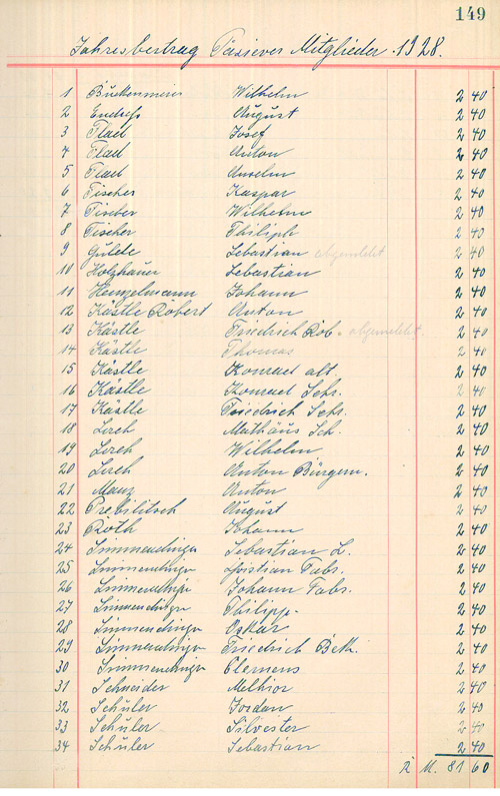 149
Jahresbeitrag Passiver Mitglieder 1928.
1 Wilhelm 2 40
2 Endreß August 2 40
3 Flad Josef 2 40
4 Flad Anton 2 40
5 Flad Anselm 2 40
6 Fischer Kaspar 2 40
7 Fischer Wilhelm 2 40
8 Fischer Philiph 2 40
9 Gulde Sebastian abgemeldet 2 40
10 Holzhauer Sebastian 2 40
11 Henzelmann Johann 2 40
12 Kästle Robert Anton 2 40
13 Kästle Friedrich Rob. abgemeldet 2 40
14 Kästle Thomas 2 40
15 Kästle Konrad alt. 2 40
16 Kästle Konrad Schr. 2 40
17 Kästle Friedrich Schr. 2 40
18 Lerch Mathäus Sch. 2 40
19 Lerch Wilhelm 2 40
20 Lerch Anton Bürgerm. 2 40
21 Manz Anton 2 40
22 Prebilitsch August 2 40
23 Roth Johann 2 40
24 Simmendinger Sebastian L. 2 40
25 Simmendinger Fabr. 2 40
26 Simmendinger Johann Fabr. 2 40
27 Simmendinger Philipp. 2 40
28 Simmendinger Oskar 2 40
29 Simmendinger Friedrich 2 40
30 Simmendinger Clemens 2 40
31 Schneider Melhior 2 40
32 Schuler Jordan 2 40
33 Schuler Silvester 2 40
34 Schuler Sebastian 2 40
M. 81 60